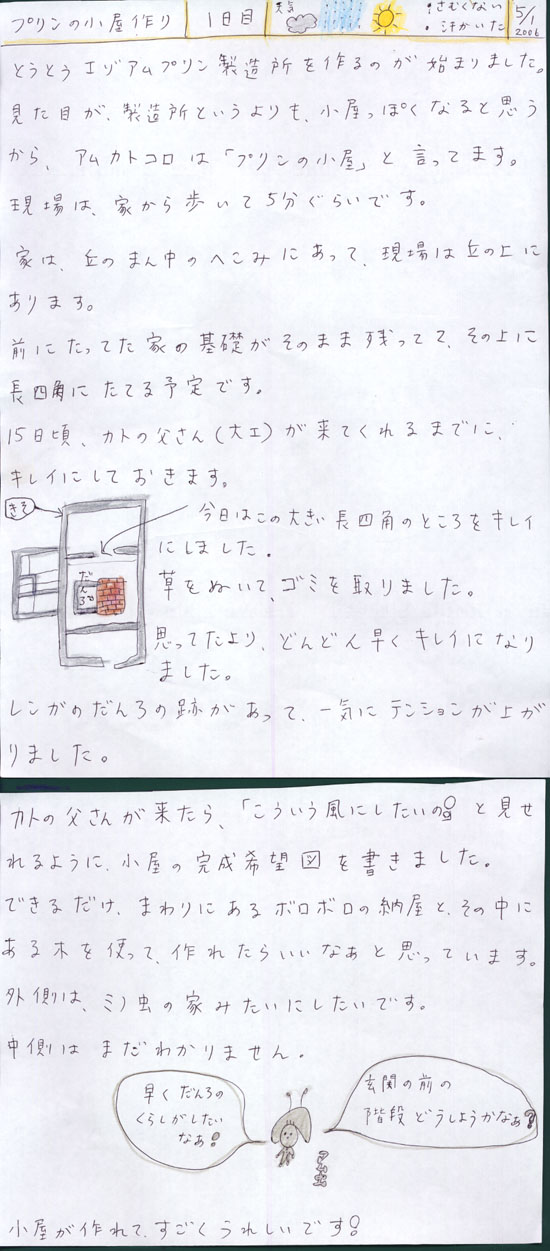 プリンの小屋作り 1日目 天気 ・さむくない 5/1
・汗かいた 2006
とうとうエゾアムプリン製造所を作るのが始まりました。
見た目が、製造所というよりも、小屋っぽくなると思う
から、アムカトコロは「プリンの小屋」と言ってます。
現場は、家から歩いて5分ぐらいです。
家は、丘のまん中のへこみにあって、現場は丘の上に
あります。
前にたってた家の基礎がそのまま残ってて、その上に
長四角にたてる予定です。
15日頃、カトの父さん(大工)が来てくれるまでに、
キレイにしておきます。
きそ
今日はこの大きい長四角のところをキレイ
にしました。
だんろ
草をぬいて、ゴミを取りました。
思ってたより、どんどん早くキレイになり
ました。
レンガのだんろの跡があって、一気にテンションが上が
りました。
カトの父さんが来たら、「こういう風にしたいの!」と見せ
れるように、小屋の完成希望図を書きました。
できるだけ、まわりにあるボロボロの納屋と、その中に
ある木を使って、作れたらいいなぁと思っています。
外側は、ミノ虫の家みたいにしたいです。
中側はまだわかりません。
早くだんろの
くらしがしたい
なぁ!
玄関の前の
階段どうしようかなぁ?
小屋が作れて、すごくうれしいです!